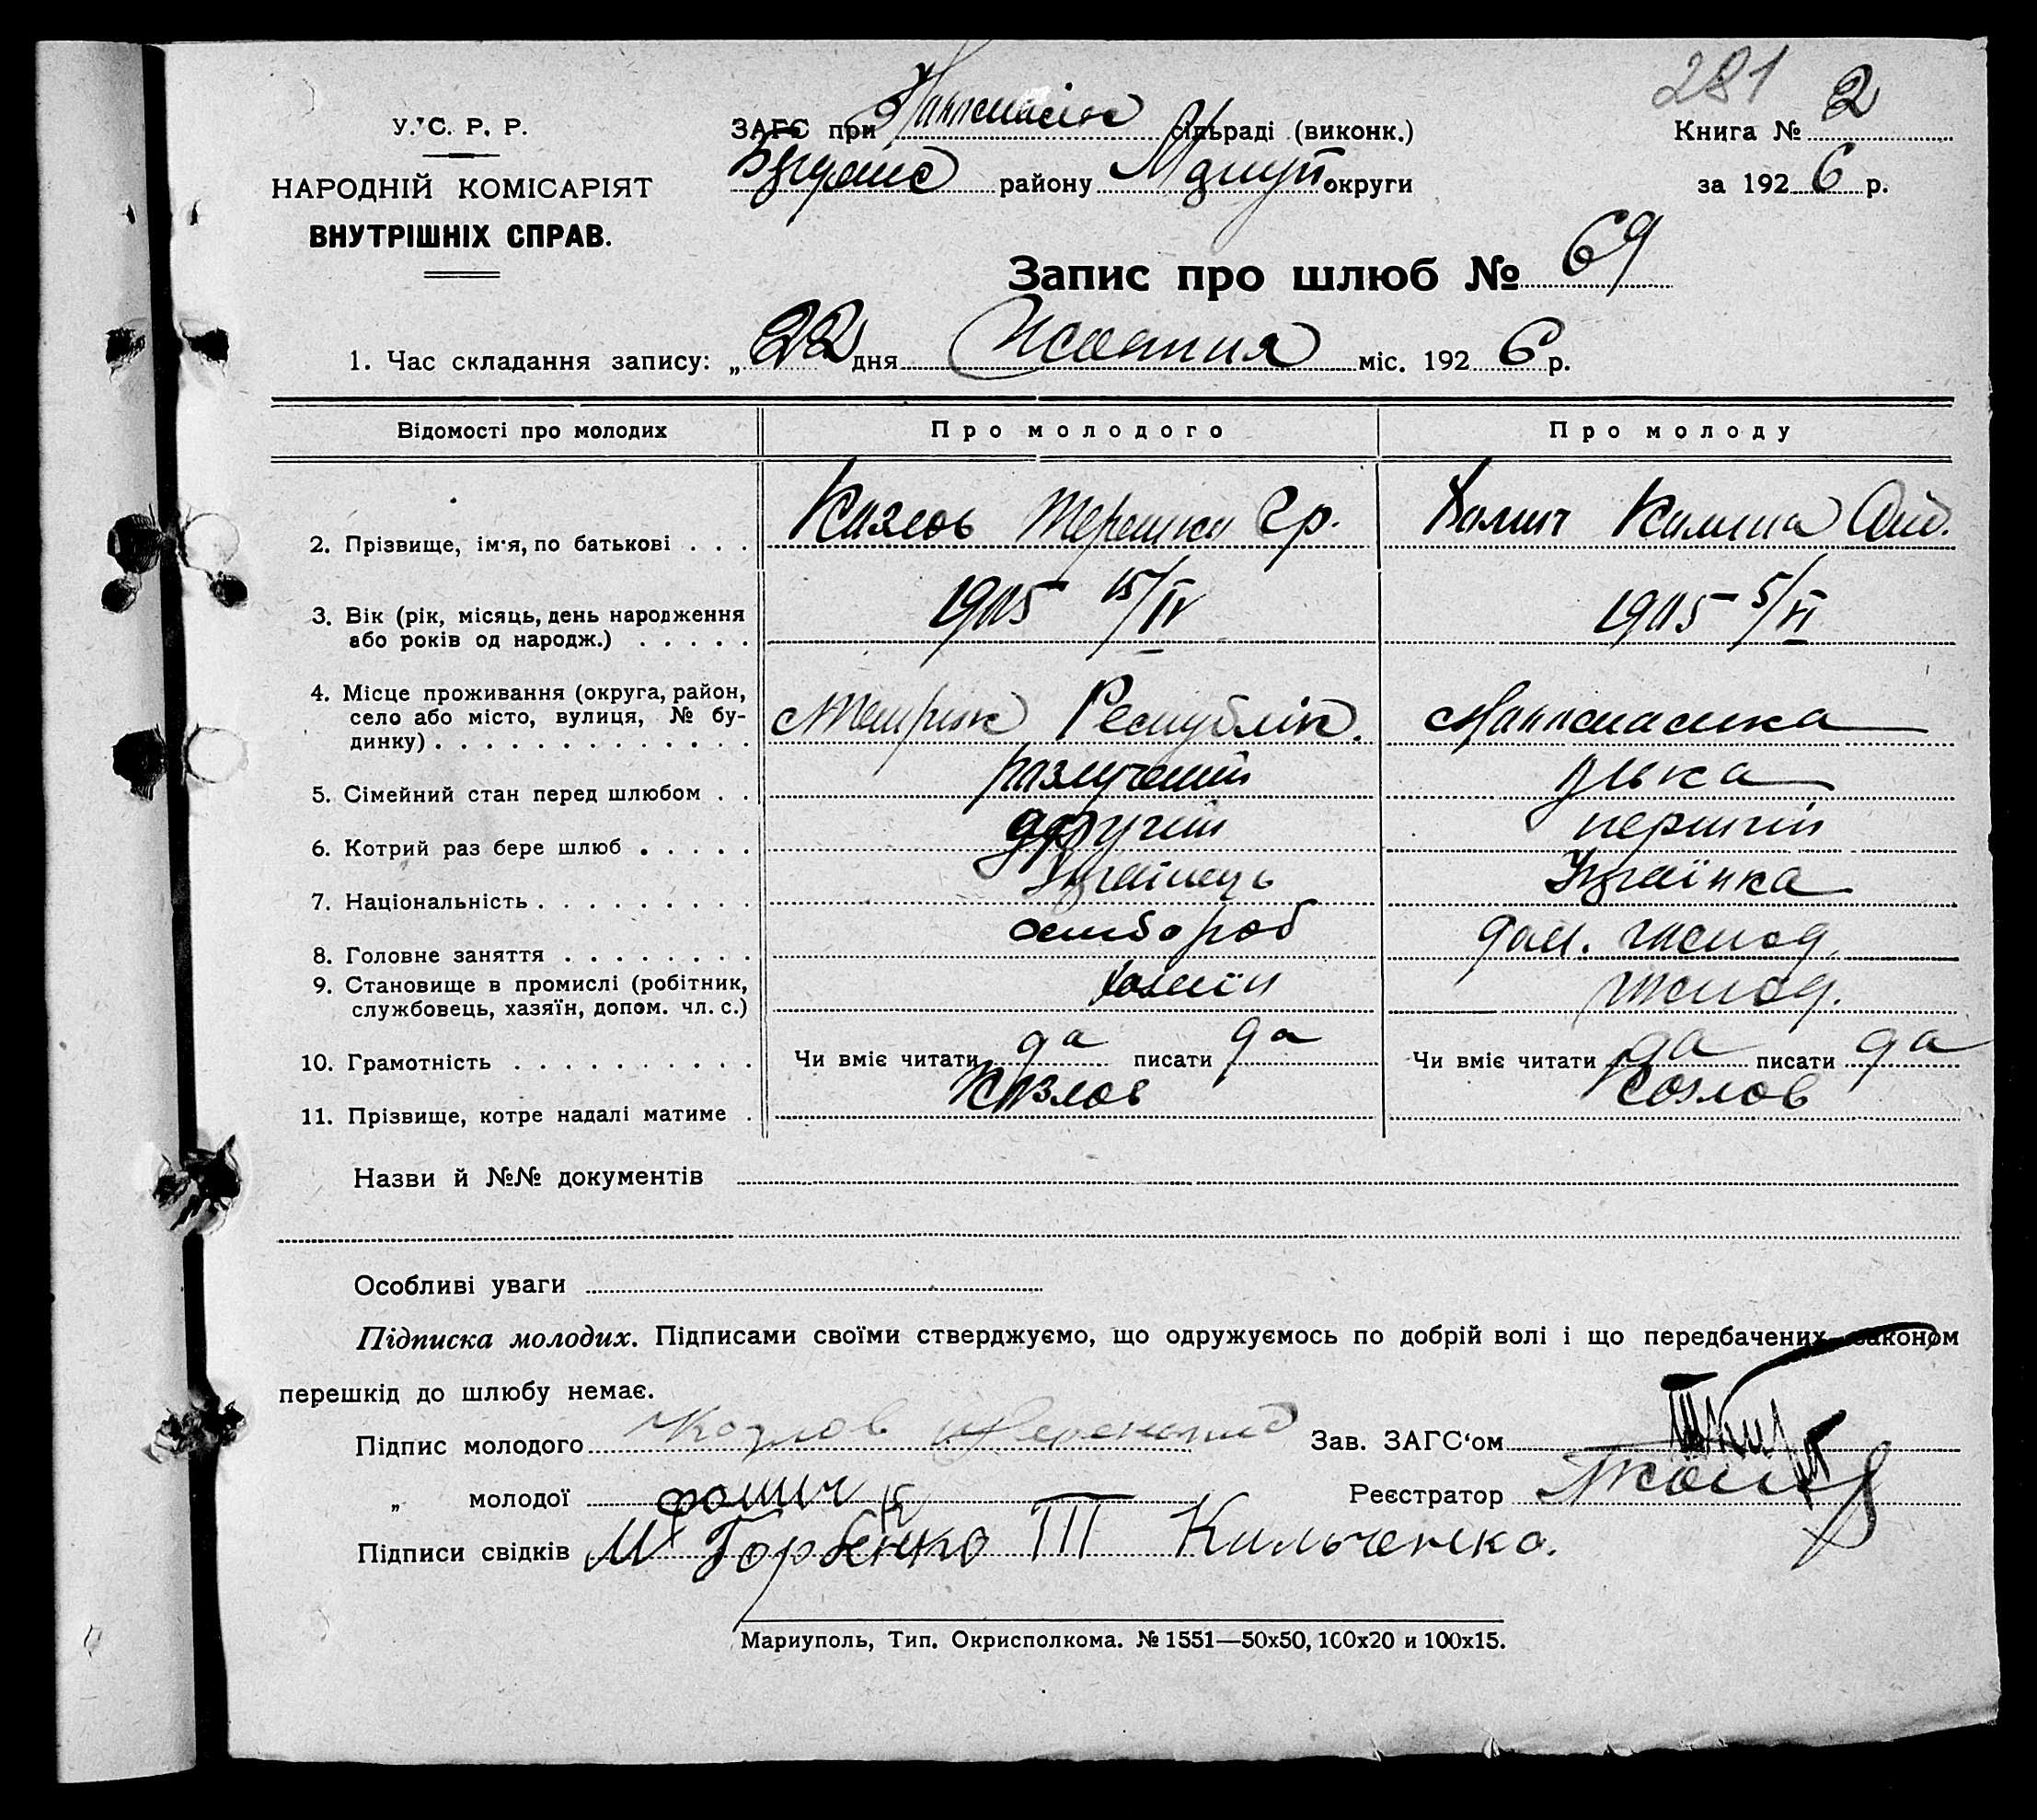 281
У. С. Р. Р.
НАРОДНІЙ КОМІСАРІЯТ
ВНУТРІШНІХ СПРАВ.
ЗАГС при сільраді (виконк.)
району Маріуп округи
Книга № 2
за 1926 р.
Запис про шлюб № 69
1. Час складання запису: „22 дня Жовтня міс. 1926 р.
Відомості про молодих Про молодого Про молоду
2. Прізвище, ім'я, по батькові . . . Козлов Терешко Гр. Хомич
3. Вік (рік, місяць, день народження
або років од народж.) . . . . . 1905 15/IV 1905 5/VI
4. Місце проживання (округа, район,
село або місто, вулиця, № бу-
динку) . . . . . . . . . . . . . Республік.
5. Сімейний стан перед шлюбом . . дівка
6. Котрий раз бере шлюб . . . . . другий перший
7. Національність . . . . . . . . . Українець Українка
8. Головне заняття . . . . . . . . хлібороб дом. господ.
9. Становище в промислі (робітник,
службовець, хазяїн, допом. чл. с.) хазяїн господ.
10. Грамотність . . . . . . . . . . Чи вміє читати да писати да Чи вміє читати да писати да
11. Прізвище, котре надалі матиме . Козлов Козлов
Назви й №№ документів
Особливі уваги
Підписка молодих. Підписами своїми стверджуємо, що одружуємось по добрій волі і що передбачених законом
перешкід до шлюбу немає.
Підпис молодого Козлов Зав. ЗАГС‘ом
„ молодої Фомич Реєстратор
Підписи свідків М Горбенко Т Кильченко.
Мариуполь, Тип. Окрисполкома. № 1551—50х50, 100х20 и 100х15.